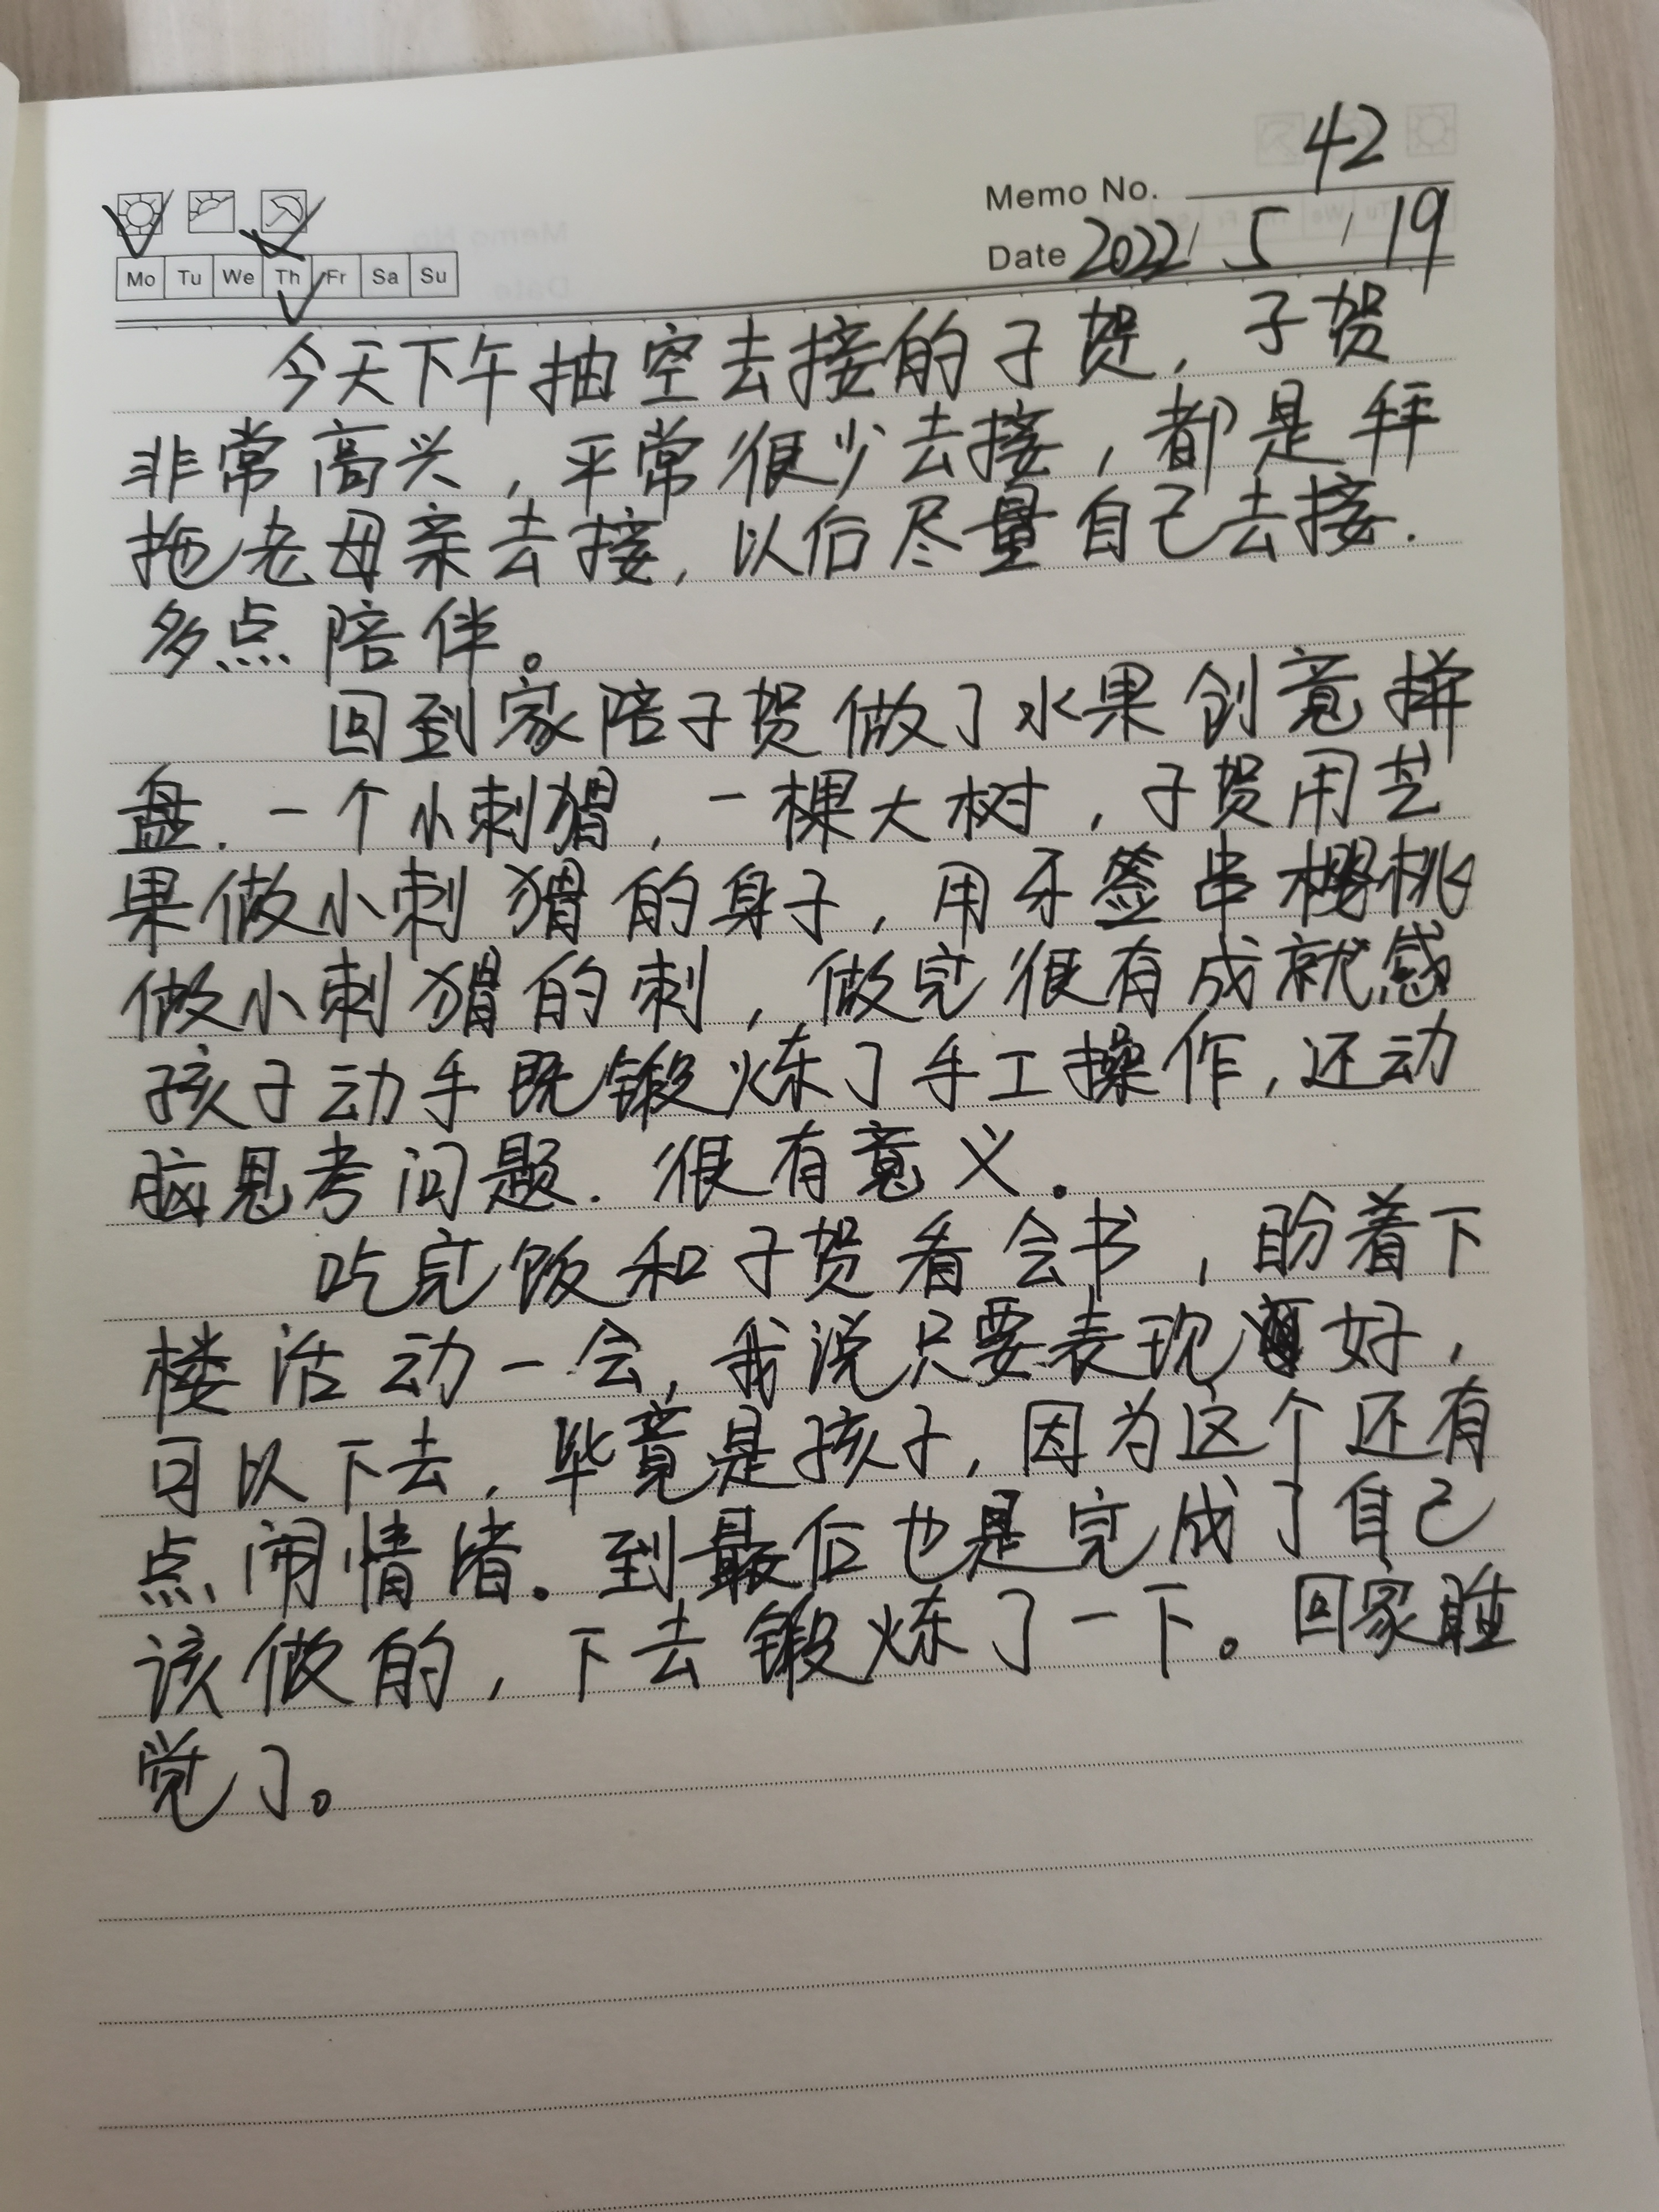 42
Memo No.
Date 2022 / 5 / 19
Mo Tu We Th Fr Sa Su
今天下午抽空去接的子贺，子贺
非常高兴，平常很少去接，都是拜
拖老母亲去接，以后尽量自己去接.
多点陪伴。
回到家陪子贺做了水果创意拼
盘.一个小刺猬，一棵大树，子贺用芒
果做小刺猬的身子，用牙签串樱桃
做小刺猬的刺，做完很有成就感
孩子动手既锻炼了手工操作，还动
脑思考问题.很有意义.
吃完饭和子贺看会书，盼着下
楼活动一会，我说只要表现好，
可以下去，毕竟是孩子，因为这个还有
点闹情绪。到最后也是完成了自己
该做的，下去锻炼了一下。回家睡
觉了。